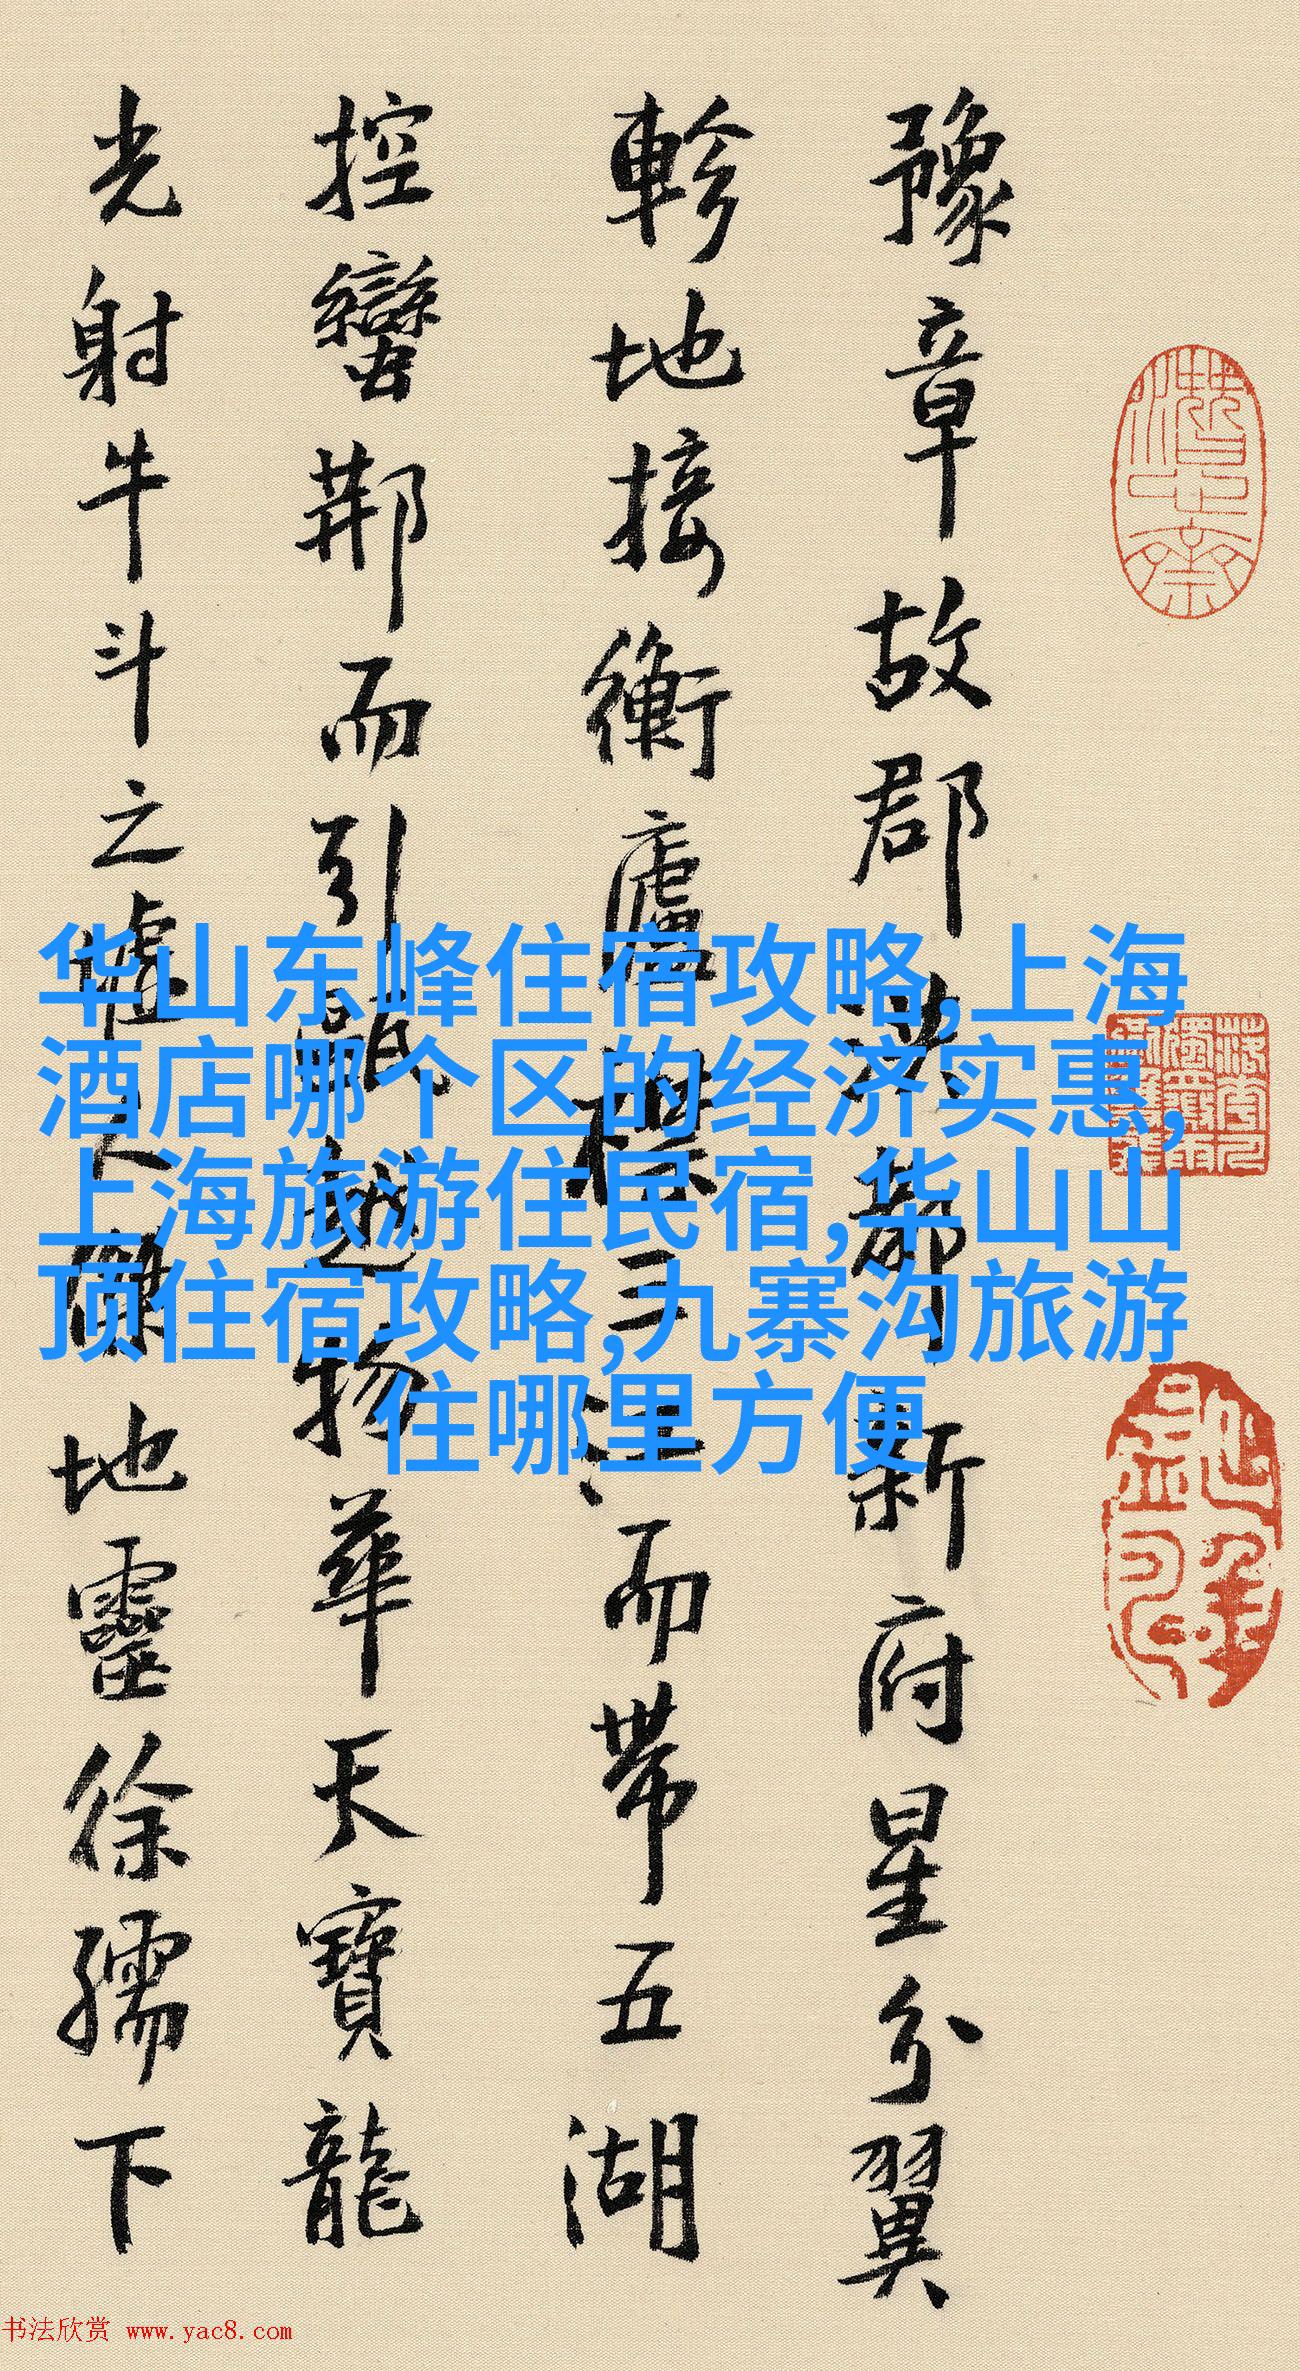 豫章故郡洪都新府星分翼
軫地接衡廬襟三江而帶五湖
控蠻荆而引甌越物華天寶龍
光射牛斗之墟人傑地靈徐孺下
华山东峰住宿攻略,上海
酒店哪个区的经济实惠,
上海旅游住民宿,华山山
顶住宿攻略,九寨沟旅游
住哪里方便
书法欣赏 www.yac8.com